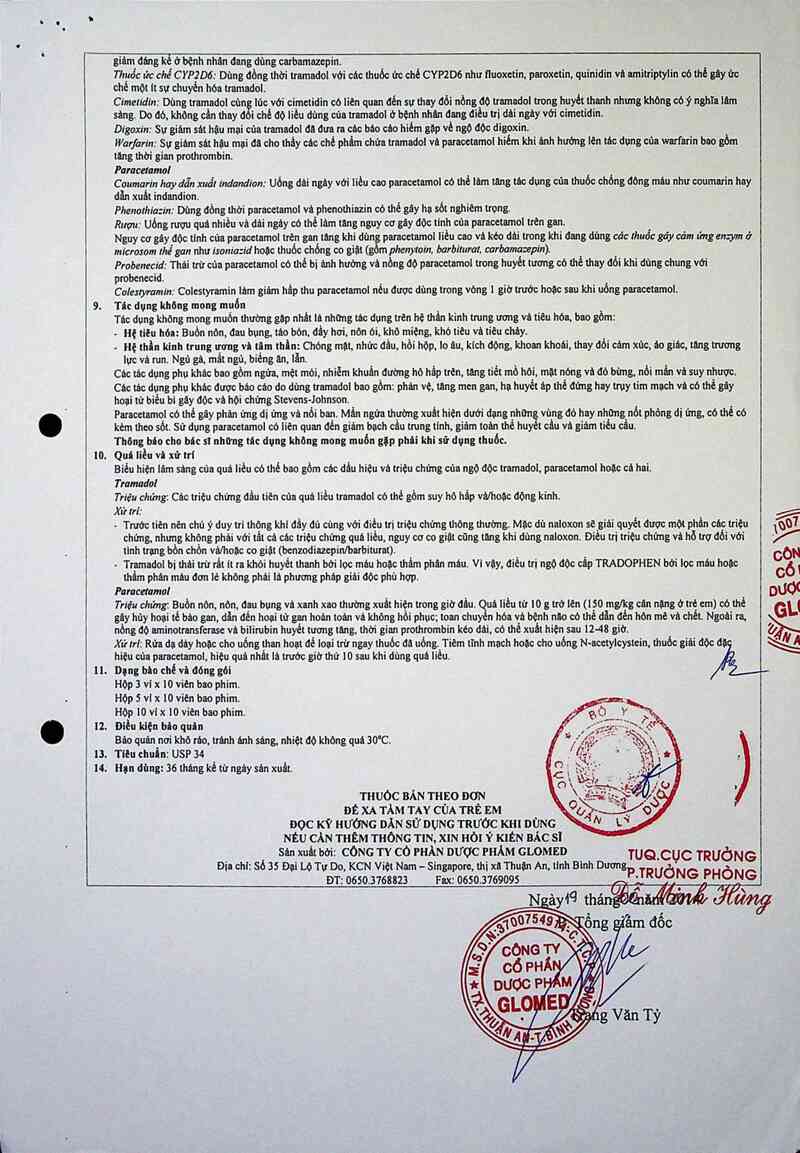 giảm đáng kể ở bệnh nhân đang dùng carbamazepin.
Thuốc ức chế CYP2D6: Dùng đồng thời tramadol với các thuốc ức chế CYP2D6 như fluoxetin, paroxetin, quinidin và amitriptylin có thể gây ức
chế một ít sự chuyển hóa tramadol.
Cimetidin: Dùng tramadol cùng lúc với cimetidin có liên quan đến sự thay đổi nồng độ tramadol trong huyết thanh nhưng không có ý nghĩa lâm
sàng. Do đó, không cần thay đổi chế độ liều dùng của tramadol ở bệnh nhân đang điều trị dài ngày với cimetidin.
Digoxin: Sự giám sát hậu mại của tramadol đã đưa ra các báo cáo hiếm gặp về ngộ độc digoxin.
Warfarin: Sự giám sát hậu mại đã cho thấy các chế phẩm chứa tramadol và paracetamol hiếm khi ảnh hưởng lên tác dụng của warfarin bao gồm
tăng thời gian prothrombin.
Paracetamol
Coumarin hay dẫn xuất indandion: Uống dài ngày với liều cao paracetamol có thể làm tăng tác dụng của thuốc chống đông máu như coumarin hay
dẫn xuất indandion.
Phenothiazin: Dùng đồng thời paracetamol và phenothiazin có thể gây hạ sốt nghiêm trọng.
Rượu: Uống rượu quá nhiều và dài ngày có thể làm tăng nguy cơ gây độc tính của paracetamol trên gan.
Nguy cơ gây độc tính của paracetamol trên gan tăng khi dùng paracetamol liều cao và kéo dài trong khi đang dùng các thuốc gây cảm ứng enzym ở
microsom thể gan như isoniazid hoặc thuốc chống co giật (gồm phenytoin, barbiturat, carbamazepin).
Probenecid: Thải trừ của paracetamol có thể bị ảnh hưởng và nồng độ paracetamol trong huyết tương có thể thay đổi khi dùng chung với
probenecid.
Colestyramin: Colestyramin làm giảm hấp thu paracetamol nếu được dùng trong vòng 1 giờ trước hoặc sau khi uống paracetamol.
9. Tác dụng không mong muốn
Tác dụng không mong muốn thường gặp nhất là những tác dụng trên hệ thần kinh trung ương và tiêu hóa, bao gồm:
- Hệ tiêu hóa: Buồn nôn, đau bụng, táo bón, đầy hơi, nôn ói, khô miệng, khó tiêu và tiêu chảy.
- Hệ thần kinh trung ương và tâm thần: Chóng mặt, nhức đầu, hồi hộp, lo âu, kích động, khoan khoái, thay đổi cảm xúc, ảo giác, tăng trương
lực và run. Ngủ gà, mất ngủ, biếng ăn, lẫn.
Các tác dụng phụ khác bao gồm ngứa, mệt mỏi, nhiễm khuẩn đường hô hấp trên, tăng tiết mồ hôi, mặt nóng và đỏ bừng, nổi mẩn và suy nhược.
Các tác dụng phụ khác được báo cáo do dùng tramadol bao gồm: phản vệ, tăng men gan, hạ huyết áp thế đứng hay trụy tim mạch và có thể gây
hoại tử biểu bì gây độc và hội chứng Stevens-Johnson.
Paracetamol có thể gây phản ứng dị ứng và nổi ban. Mẩn ngứa thường xuất hiện dưới dạng những vùng đỏ hay những nốt phỏng dị ứng, có thể có
kèm theo sốt. Sử dụng paracetamol có liên quan đến giảm bạch cầu trung tính, giảm toàn thể huyết cầu và giảm tiểu cầu.
Thông báo cho bác sĩ những tác dụng không mong muốn gặp phải khi sử dụng thuốc.
10. Quá liều và xử trí
Biểu hiện lâm sàng của quá liều có thể bao gồm các dấu hiệu và triệu chứng của ngộ độc tramadol, paracetamol hoặc cả hai.
Tramadol
Triệu chứng: Các triệu chứng đầu tiên của quá liều tramadol có thể gồm suy hô hấp và/hoặc động kinh.
Xử trí:
- Trước tiên nên chú ý duy trì thông khí đầy đủ cùng với điều trị triệu chứng thông thường. Mặc dù naloxon sẽ giải quyết được một phần các triệu
chứng, nhưng không phải với tất cả các triệu chứng quá liều, nguy cơ co giật cũng tăng khi dùng naloxon. Điều trị triệu chứng và hỗ trợ đối với
tình trạng bồn chồn và/hoặc co giật (benzodiazepin/barbiturat).
- Tramadol bị thải trừ rất ít ra khỏi huyết thanh bởi lọc máu hoặc thẩm phân máu. Vì vậy, điều trị ngộ độc cấp TRADOPHEN bởi lọc máu hoặc
thẩm phân máu đơn lẻ không phải là phương pháp giải độc phù hợp.
Paracetamol
Triệu chứng: Buồn nôn, nôn, đau bụng và xanh xao thường xuất hiện trong giờ đầu. Quá liều từ 10 g trở lên (150 mg/kg cân nặng ở trẻ em) có thể
gây hủy hoại tế bào gan, dẫn đến hoại tử gan hoàn toàn và không hồi phục; toan chuyển hóa và bệnh não có thể dẫn đến hôn mê và chết. Ngoài ra,
nồng độ aminotransferase và bilirubin huyết tương tăng, thời gian prothrombin kéo dài, có thể xuất hiện sau 12-48 giờ.
Xử trí: Rửa dạ dày hoặc cho uống than hoạt để loại trừ ngay thuốc đã uống. Tiêm tĩnh mạch hoặc cho uống N-acetylcystein, thuốc giải độc đặc
hiệu của paracetamol, hiệu quả nhất là trước giờ thứ 10 sau khi dùng quá liều.
11. Dạng bào chế và đóng gói
Hộp 3 vỉ x 10 viên bao phim.
Hộp 5 vỉ x 10 viên bao phim.
Hộp 10 vỉ x 10 viên bao phim.
12. Điều kiện bảo quản
Bảo quản nơi khô ráo, tránh ánh sáng, nhiệt độ không quá 30°C.
13. Tiêu chuẩn: USP 34
14. Hạn dùng: 36 tháng kể từ ngày sản xuất.
BỘ Y TẾ
CỤC QUẢN LÝ DƯỢC
THUỐC BÁN THEO ĐƠN
ĐỂ XA TẦM TAY CỦA TRẺ EM
ĐỌC KỸ HƯỚNG DẪN SỬ DỤNG TRƯỚC KHI DÙNG
NẾU CẦN THÊM THÔNG TIN, XIN HỎI Ý KIẾN BÁC SĨ
Sản xuất bởi: CÔNG TY CỔ PHẦN DƯỢC PHẨM GLOMED
Địa chỉ: Số 35 Đại Lộ Tự Do, KCN Việt Nam – Singapore, thị xã Thuận An, tỉnh Bình Dương
ĐT: 0650.3768823 Fax: 0650.3769095
TUQ.CỤC TRƯỞNG
P.TRƯỞNG PHÒNG
Đỗ Minh Hùng
Ngày 19 tháng năm
Tổng giám đốc
M.S.D.N:37007549
CÔNG TY
CỔ PHẦN
DƯỢC PHẨM
GLOMED
TX.THUẬN AN-T.BÌNH DƯƠNG
Trang Văn Tỷ